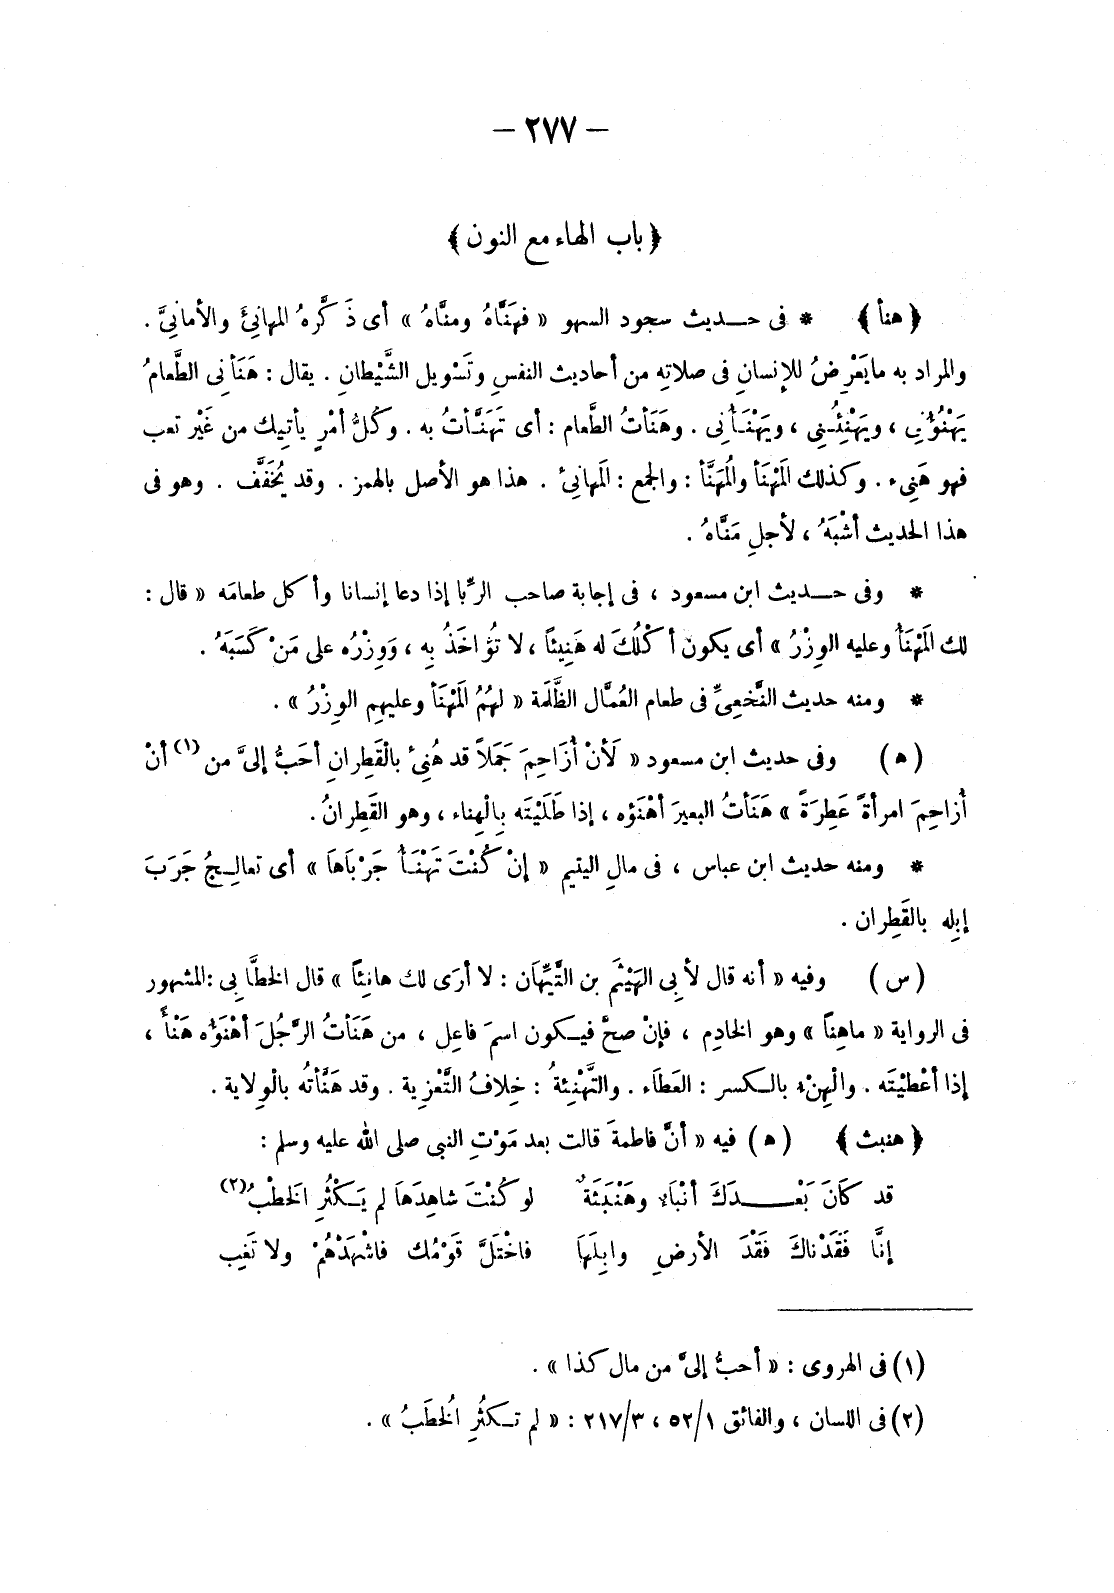 — ٢٧٧ —
﴿ باب الهاء مع النون ﴾
﴿ هنأ ﴾ * فى حديث سجود السهو « فهَنَّاهُ ومنَّاهُ » أى ذَكَّرهُ المهانِئَ والأمانِىَّ .
والمراد به مايَعْرِضُ للإنسانِ فى صلاتهِ من أحاديث النفسِ وتَسْويل الشَّيْطانِ . يقال : هَنَأنِى الطَّعامُ
يَهْنُؤُنِى ، ويَهْنِئُنِى ، ويَهْنَأُنِى . وهَنَأتُ الطَّعام : أى تَهَنَّأتُ به . وكُلُّ أمْرٍ يأتِيك من غَيْر تعب
فهو هَنِىء . وكذلك المَهْنَأ والمُهَنَّأ : والجمع : المَهانِئ . هذا هو الأصل بالهمز . وقد يُخَفَّف . وهو فى
هذا الحديث أشْبَهُ ، لأجلِ مَنَّاهُ .
* وفى حديث ابن مسعود ، فى إجابة صاحب الرِّبا إذا دعا إنسانا وأكل طعامَه « قال :
لك المَهْنَأُ وعليه الوِزْرُ » أى يكون أكْلُكَ له هَنِيئاً ، لا تُؤاخَذُ بِهِ ، وَوِزْرُه على مَنْ كَسَبَهُ .
* ومنه حديث النَّخعِىِّ فى طعام العُمَّال الظَّلَمة « لهُمُ المَهْنَأ وعليهِم الوِزْرُ » .
( ه ) وفى حديث ابن مسعود « لَأنْ أُزَاحِمَ جَمَلاً قد هُنِئَ بالْقَطِرانِ أحَبُّ إلىَّ من (١) أنْ
أُزاحِمَ امرأةً عَطِرَةً » هَنَأتُ البعيرَ أهْنَؤه ، إذا طَلَيْتَه بِالْهِناء ، وهو القَطِرانُ .
* ومنه حديث ابن عباس ، فى مالِ اليتيم « إنْ كُنْتَ تَهْنَأُ جَرْبَاهَا » أى تعالِجُ جَرَبَ
إبِلِه بالقَطِران .
( س ) وفيه « أنه قال لأبِى الهَيْثَم بن التَّيِّهَان : لا أرَى لك هانِئاً » قال الخطَّابِى : المشهور
فى الرواية « ماهِناً » وهو الخادِم ، فإنْ صحَّ فيكون اسمَ فاعِل ، من هَنَأتُ الرَّجُلَ أهْنَؤُه هَنْأً ،
إذا أعْطيْتَه . والْهِنْء بالكسر : العَطَاء . والتَّهْنِئةُ : خِلافُ التَّعْزِية . وقد هَنَّأتُه بالْوِلاية .
﴿ هنبث ﴾ ( ه ) فيه « أنَّ فاطمةَ قالت بعد مَوْتِ النبى صلى الله عليه وسلم :
قد كَانَ بَعْدَكَ أنْبَاءٌ وهَنْبَثَةٌ لو كُنْتَ شاهِدَهَا لم يَكْثُرِ الخَطْبُ (٢)
إنَّا فَقَدْناكَ فَقْدَ الأرضِ وابِلَهَا فاخْتَلَّ قَوْمُك فاشْهَدْهُمْ ولا تَغِب
(١) فى الهروى : « أحبُّ إلىَّ من مال كذا » .
(٢) فى اللسان ، والفائق ١/٥٢ ، ٣/٢١٧ : « لم تكثُرِ الُخطَبُ » .